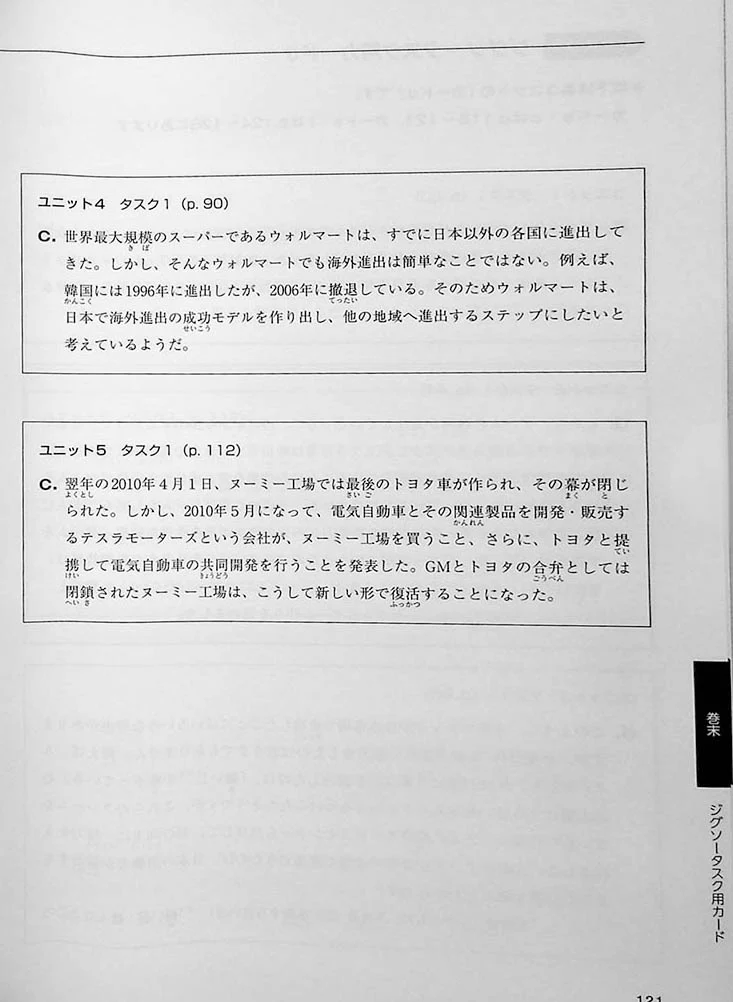 ユニット4　タスク1（p. 90）
C. 世界最大規模のスーパーであるウォルマートは、すでに日本以外の各国に進出して
きぼ
きた。しかし、そんなウォルマートでも海外進出は簡単なことではない。例えば、
韓国には1996年に進出したが、2006年に撤退している。そのためウォルマートは、
かんこく　てったい
日本で海外進出の成功モデルを作り出し、他の地域へ進出するステップにしたいと
せいこう
考えているようだ。
ユニット5　タスク1（p. 112）
C. 翌年の2010年4月1日、ヌーミー工場では最後のトヨタ車が作られ、その幕が閉じ
よくとし　さいご　まく　と
られた。しかし、2010年5月になって、電気自動車とその関連製品を開発・販売す
かんれん
るテスラモーターズという会社が、ヌーミー工場を買うこと、さらに、トヨタと提
てい
携して電気自動車の共同開発を行うことを発表した。GMとトヨタの合弁としては
けい　きょうどう　ごうべん
閉鎖されたヌーミー工場は、こうして新しい形で復活することになった。
へいさ　ふっかつ
巻末
ジグソータスク用カード
121